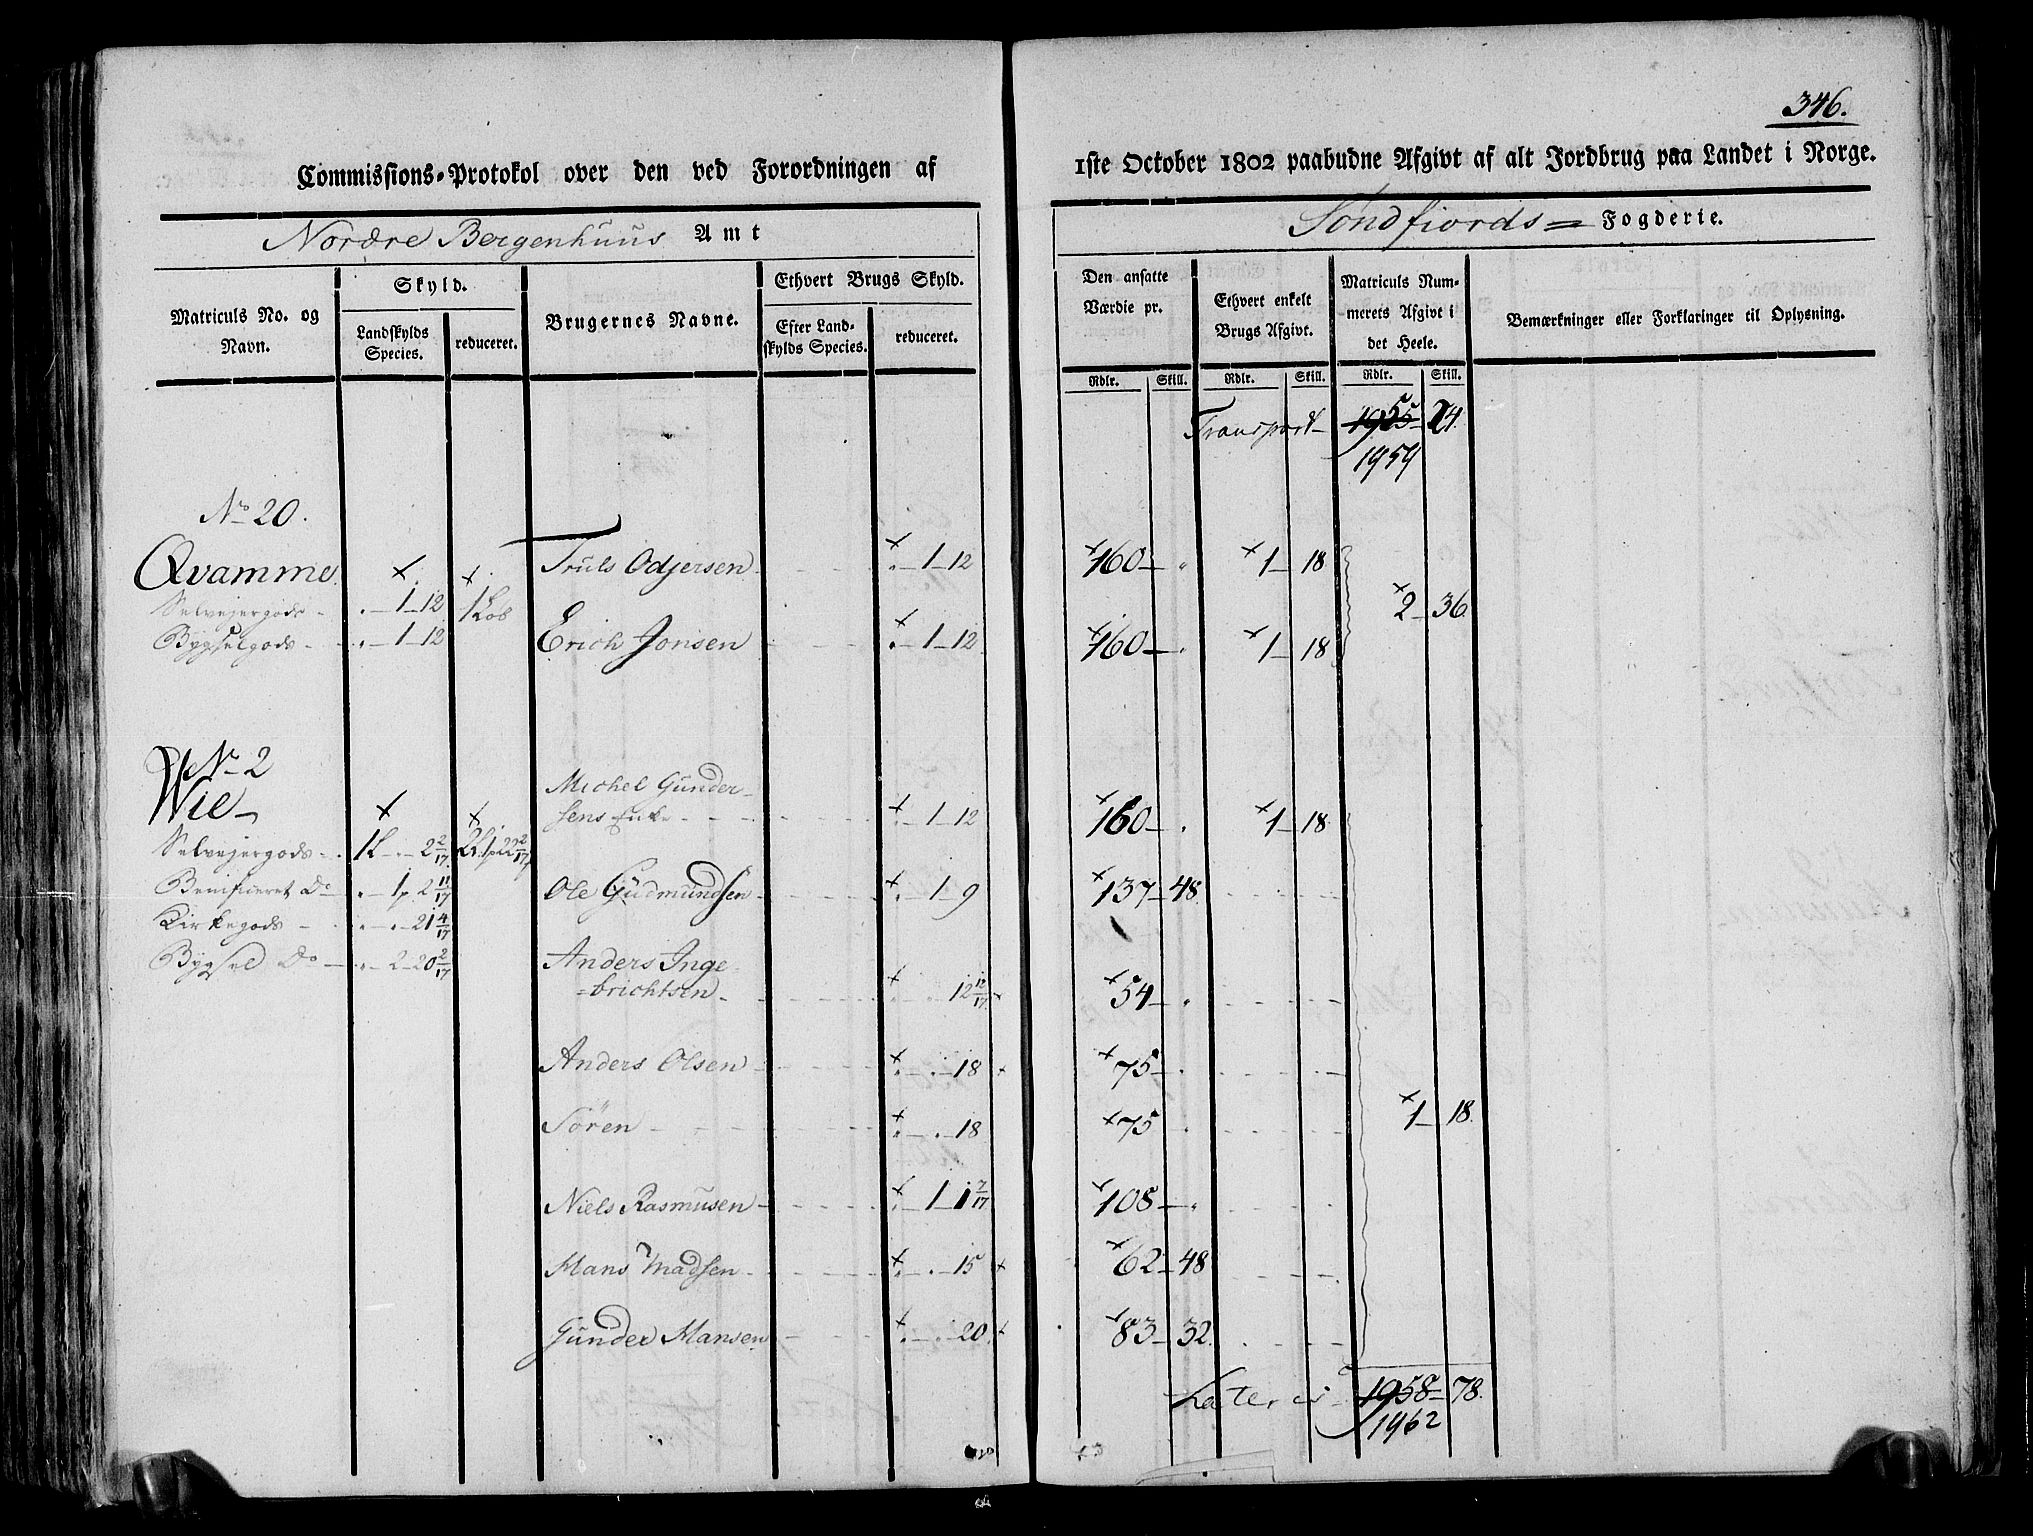 346.
Commissions-Protokol over den ved Forordningen af 1ste October 1802 paabudne Afgivt af alt Jordbrug paa Landet i Norge.
Nordre Bergenhuus Amt
Söndfiords Fogderie.
Matriculs No. og Navn.
Skyld.
Landskylds Species.
reduceret.
Brugernes Navne.
Ethvert Brugs Skyld.
Efter Landskylds Species.
reduceret.
Den ansatte Værdie pr.
Ethvert enkelt Brugs Afgivt.
Matriculs Nummerets Afgivt i det Heele.
Bemærkninger eller Forklaringer til Oplysning.
Rdlr. Skill. Rdlr. Skill. Rdlr. Skill.
Transport 1955 24.
1959
No 20.
Qvamme
Truls Odjersen 1 12 160 1 18
Selvejergods 1 12
2 36
Bygselgods 1 12
Erich Jonsen 1 12 160 1 18
No 2
Wie
Michel Gunder-
sens Enke 1 12 160 1 18
Selvejergods 2 2/17
Benificeret Do 1 2 11/17
Ole Gudmundsen 1 9 137 48
Kirkegods 21 4/17
Bygsel Do 2 20 2/17
Anders Inge-
brichtsen 12 12/17 54
Anders Olsen 18 75
Sören 18 75
1 18
Niels Rasmusen 1 1 7/17 108
Hans Madsen 15 62 48
Gunder Hansen 20 83 32
Lateris 1958 78.
1962